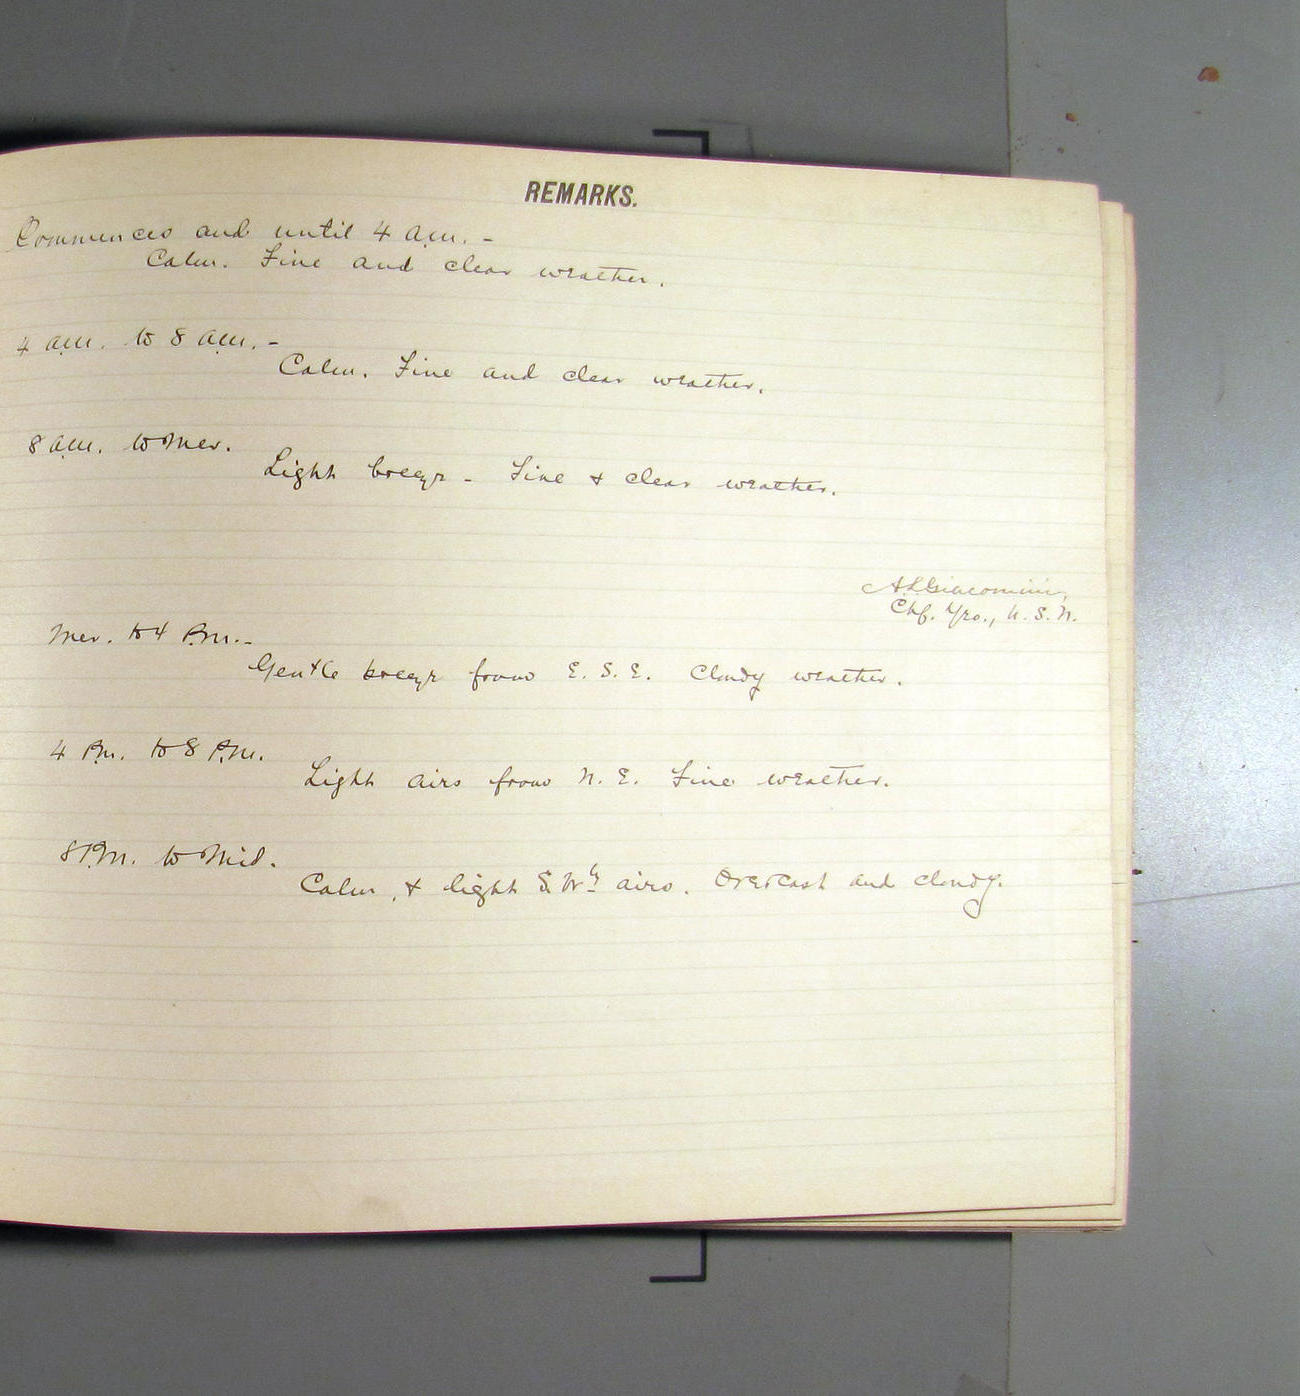 REMARKS.
Commences and until 4 a.m. -
Calm. Fine and clear weather.
4 a.m. to 8 a.m. -
Calm. Fine and clear weather.
8 a.m. to Mer.
Light breeze - Fine & clear weather.
A. L. Giacomini,
Chf. Yeo., U. S. N.
Mer. to 4 P.M. -
Gentle breeze from E. S. E. Cloudy weather.
4 P.M. to 8 P.M.
Light airs from N. E. Fine weather.
8 P.M. to Mid.
Calm, & light S.W'ly airs. Overcast and cloudy.